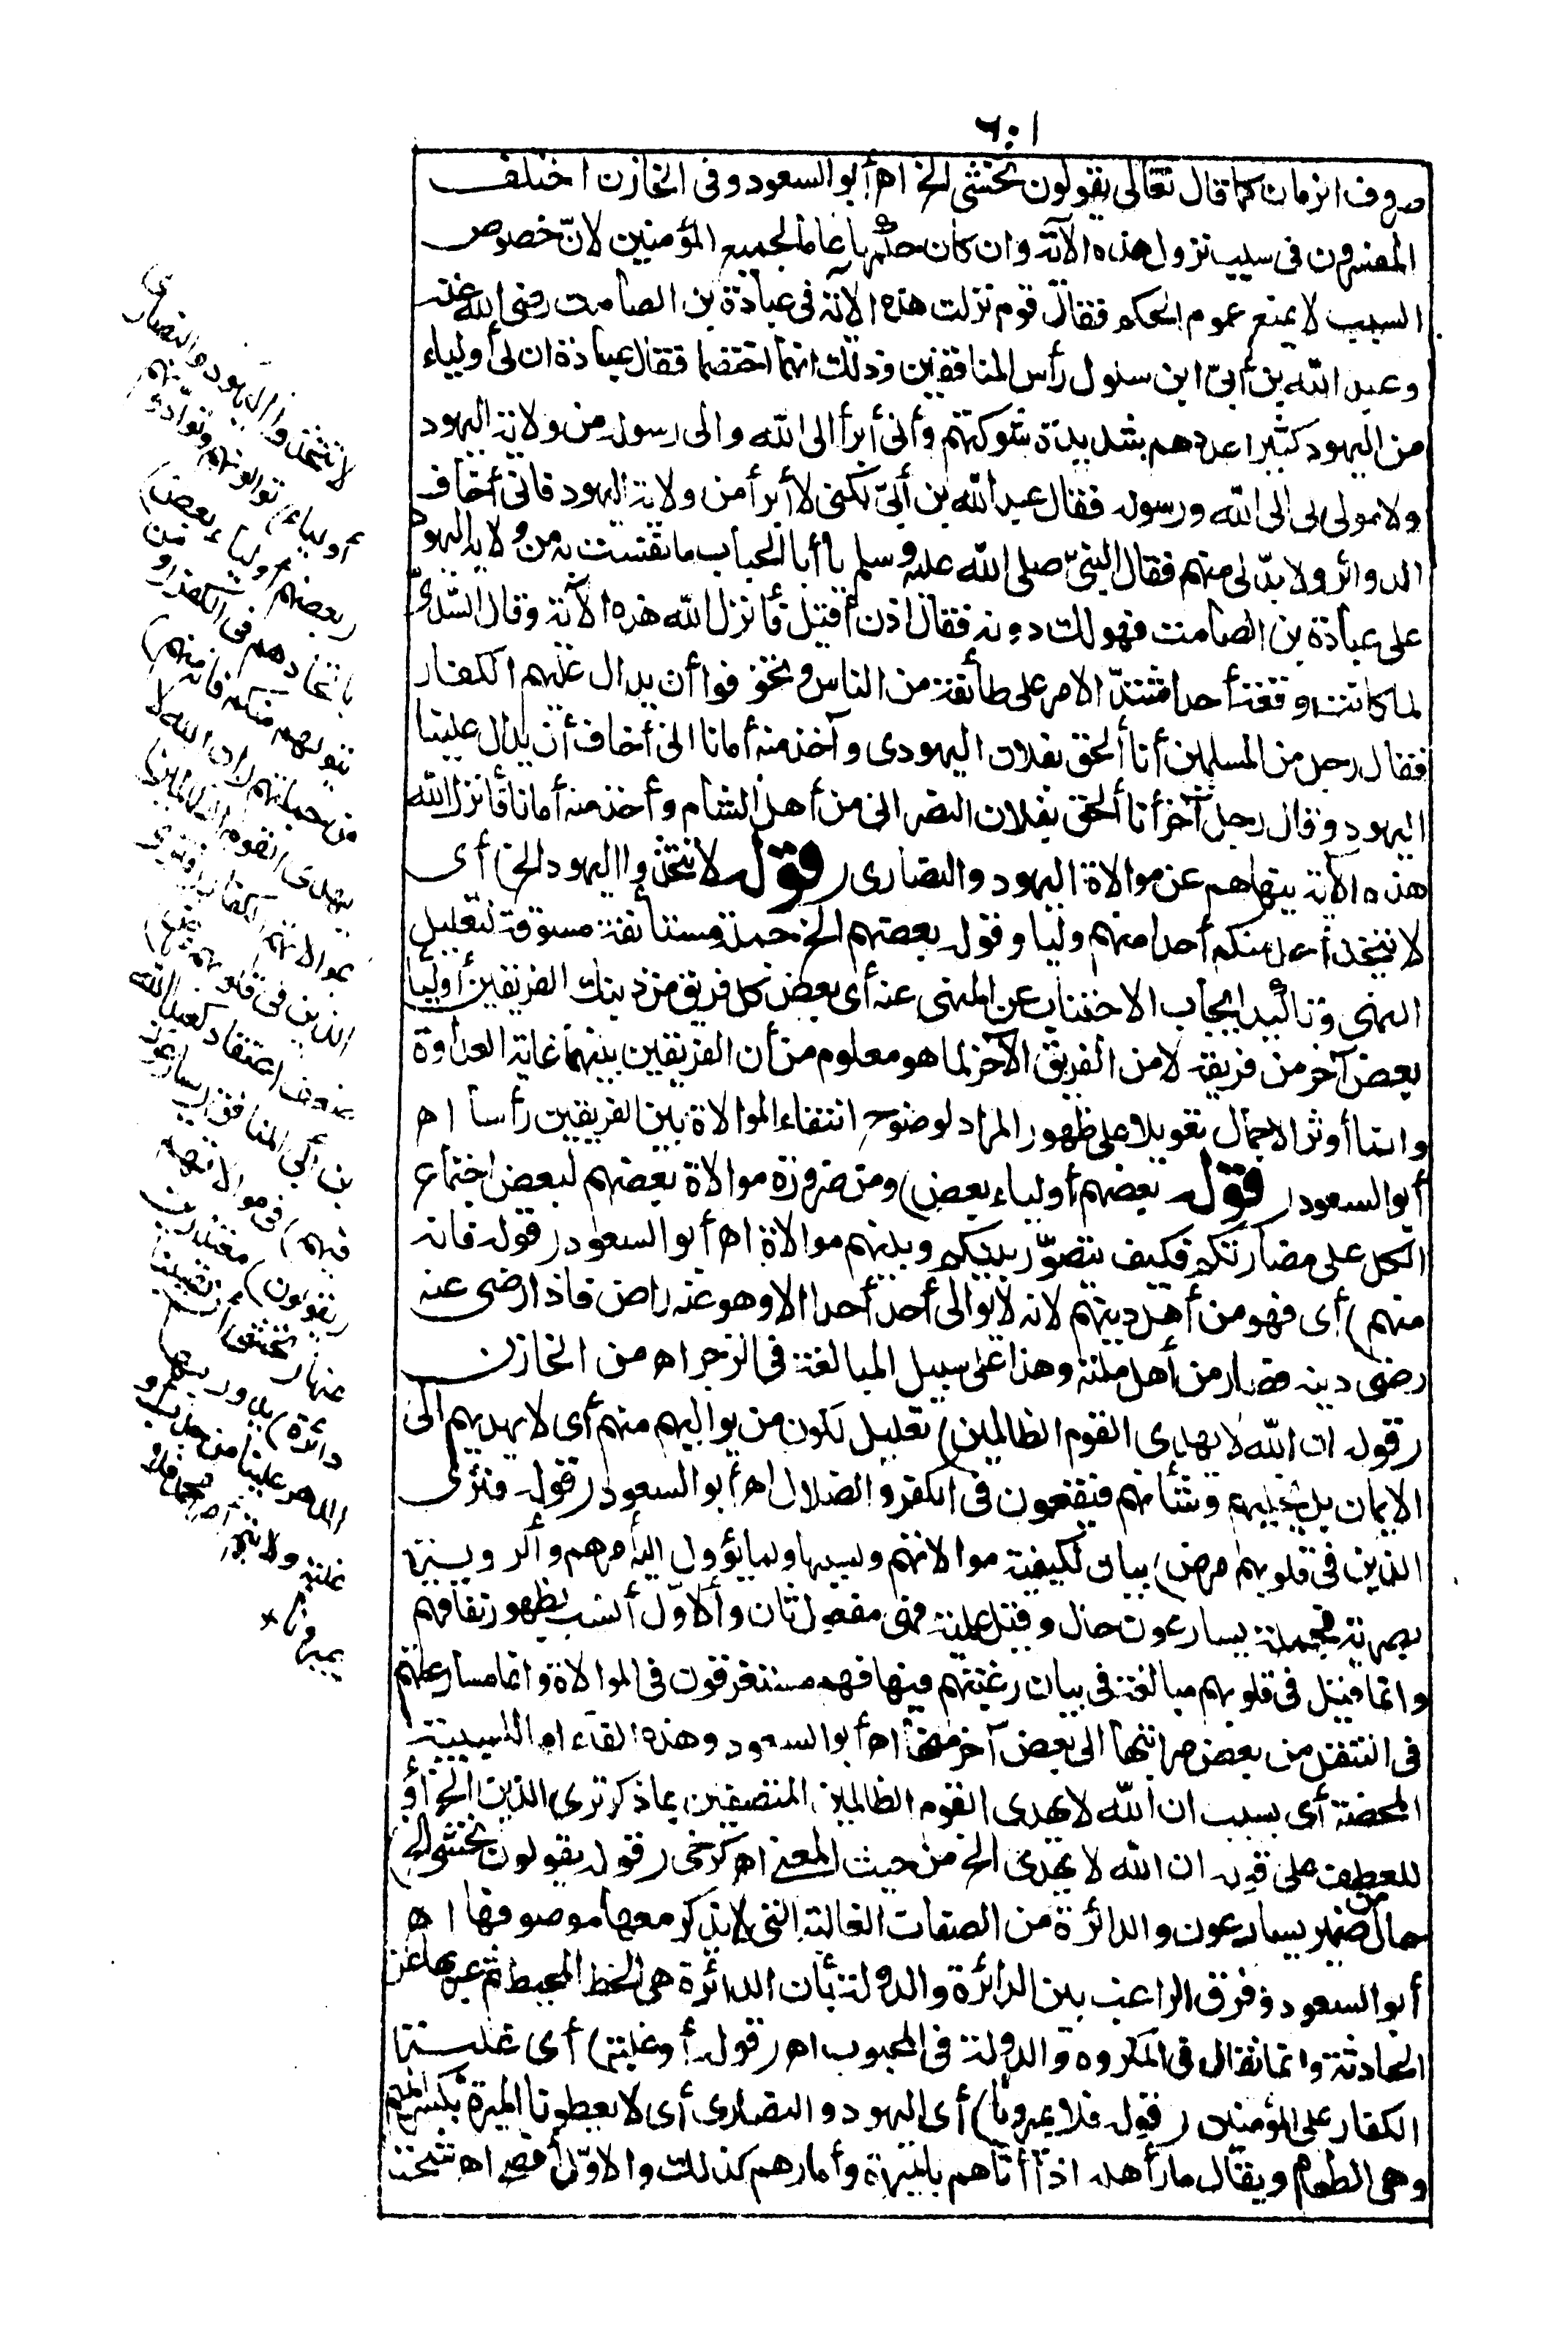 ٦٠١
صروف الزمان كما قال تعالى يقولون نخشى الخ اه أبو السعود وفى الخازن اختلف
المفسرون فى سبب نزول هذه الآية وان كان حكمها عاما لجميع المؤمنين لانّ خصوص
السبب لا يمنع عموم الحكم فقال قوم نزلت هذه الآية فى عبادة بن الصامت رضى الله عنه
وعبد الله بن أبىّ ابن سلول رأس المنافقين وذلك انهما اختصما فقال عبادة ان لى أولياء
من اليهود كثيرا عددهم شديدة شوكتهم وأنى أبرأ الى الله والى رسوله من ولاية اليهود
ولا مولى لى الى الله ورسوله فقال عبد الله بن أبىّ لكنى لا أبرأ من ولاية اليهود فانى أخاف
الدوائر ولا بدّ لى منهم فقال النبىّ صلى الله عليه وسلم يا أبا الحباب ما نفست به من ولاية اليهود
على عبادة بن الصامت فهو لك دونه فقال اذن أقبل فأنزل الله هذه الآية وقال السّدىّ
لما كانت وقعة أحد اشتدّ الامر على طائفة من الناس وتخوّفوا أن يدال عليهم الكفار
فقال رجل من المسلمين أنا ألحق بفلان اليهودى وآخذ منه أمانا انى أخاف أن يدال علينا
اليهود وقال رجل آخر أنا ألحق بفلان النصرانى من أهل الشام وآخذ منه أمانا فأنزل الله
هذه الآية ينهاهم عن موالاة اليهود والنصارى (قوله لا تتخذوا اليهود الخ) أى
لا يتخذ أحد منكم أحدا منهم وليا وقوله بعضهم الخ جملة مستأنفة مسوقة لتعليل
النهى وتأكيد ايجاب الاجتناب عن المنهى عنه أى بعض كل فريق من ذينك الفريقين أولياء
بعض آخر من فريقه لا من الفريق الآخر لما هو معلوم من أن الفريقين بينهما غاية العداوة
وانما أوثر الاجمال تعويلا على ظهور المراد لوضوح انتفاء الموالاة بين الفريقين رأسا اه
أبو السعود (قوله بعضهم أولياء بعض) ومن ضرورة موالاة بعضهم لبعض اجتماع
الكل على مضارتكم فكيف يتصوّر بينكم وبينهم موالاة اه أبو السعود (قوله فانه
منهم) أى فهو من أهل دينهم لانه لا يوالى أحد أحدا الا وهو عنه راض فاذا رضى عنه
رضى دينه فصار من أهل ملته وهذا على سبيل المبالغة فى الزجر اه من الخازن
(قوله ان الله لا يهدى القوم الظالمين) تعليل لكون من يواليهم منهم أى لا يهديهم الى
الايمان بل يخليهم وشأنهم فيقعون فى الكفر والضلال اه أبو السعود (قوله فترى
الذين فى قلوبهم مرض) بيان لكيفية موالاتهم ولسببها ولما يؤول اليه أمرهم
بصرية فجملة يسارعون حال وقيل علمية فهى مفعول ثان والاوّل أنسب بظهور نفاقهم
وانما قيل فى قلوبهم مبالغة فى بيان رغبتهم فيها فهم مستغرقون فى الموالاة وانما مسارعتهم
فى التنقل من بعض مراتبها الى بعض آخر منها اه أبو السعود وهذه الفاء اما للسببية
المحضة أى بسبب ان الله لا يهدى القوم الظالمين المتصفين بما ذكر ترى الذين الخ أو
للعطف على قوله ان الله لا يهدى الخ من حيث المعنى اه كرخى (قوله يقولون نخشى الخ)
حال من ضمير يسارعون والدائرة من الصفات الغالبة التى لا يذكر معها موصوفها اه
أبو السعود وفرق الراغب بين الدائرة والدولة بأن الدائرة هى الخط المحيط ثم عبر بها عن
الحادثة وانما تقال فى المكروه والدولة فى المحبوب اه (قوله أو غلبة) أى غلبة
الكفار على المؤمنين (قوله فلا يميرونا) أى اليهود والنصارى أى لا يعطونا الميرة بكسر الميم
وهى الطعام ويقال مار أهله اذا أتاهم بالميرة وأمارهم كذلك والاوّل أفصح اه شيخنا
لا تتخذوا اليهود والنصارى
أولياء) توالونهم وتوادّونهم
(بعضهم أولياء بعض)
باتحادهم فى الكفر (ومن
يتولهم منكم فانه منهم)
من جملتهم (ان الله لا
يهدى القوم الظالمين)
بموالاتهم الكفار (فترى
الذين فى قلوبهم مرض)
ضعف اعتقاد كعبد الله
بن أبىّ المنافق (يسارعون
فيهم) فى موالاتهم
(يقولون) معتذرين
عنها (نخشى أن تصيبنا
دائرة) يدور بها
الدهر علينا من جدب أو
غلبة ولا يتم أمر محمد فلا
يميرونا